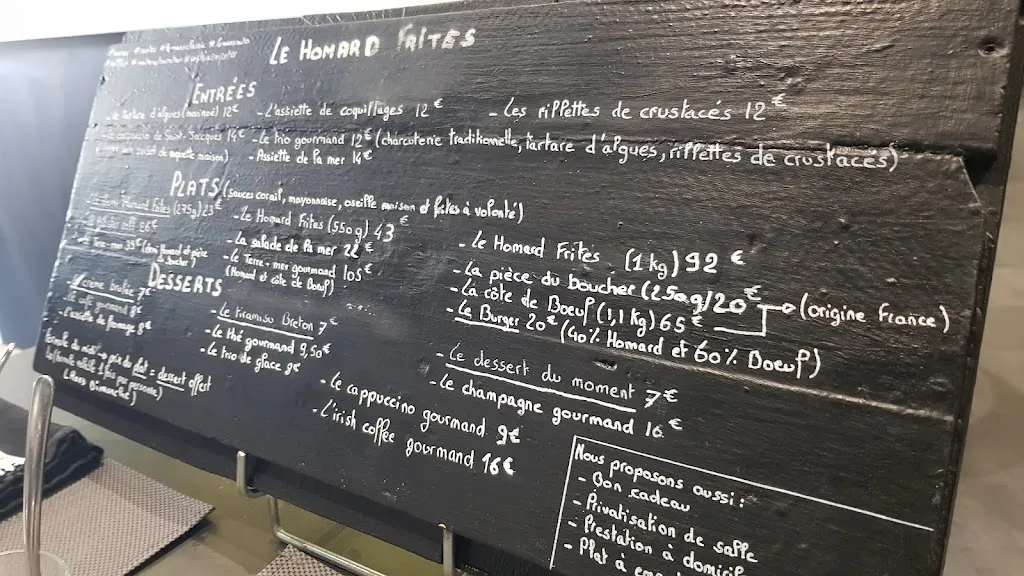 LE HOMARD FRITES
ENTRÉES
tartare d'algues (maison) 12€ - L'assiette de coquillages 12€ - Les rillettes de crustacés 12€
de Saint Jacques 14€ - Le trio gourmand 12€ (charcuterie traditionnelle, tartare d'algues, rillettes de crustacés)
maison) - Assiette de la mer 14€
PLATS (sauces corail, mayonnaise, oseille maison et frites à volonté)
Homard Frites (275g) 23€ - Le Homard Frites (550g) 43€ - Le Homard Frites (1kg) 92€
- La salade de la mer 22€ - La pièce du boucher (250g) 20€ (origine France)
- Le Terre-mer gourmand 105€ - La côte de Boeuf (1,1kg) 65€
(Homard et côte de Boeuf) - Le Burger 20€ (40% Homard et 60% Boeuf)
DESSERTS
crème brulée 7€ - Le tiramisu Breton 7€ - Le dessert du moment 7€
café gourmand 8€ - Le thé gourmand 9,50€ - Le champagne gourmand 16€
- L'assiette de fromage 9€ - Le trio de glace 8€ - Le cappuccino gourmand 9€
- L'irish coffee gourmand 16€
plat = dessert offert
Nous proposons aussi :
- Bon cadeau
- Privatisation de salle
- Prestation à domicile
- Plat à